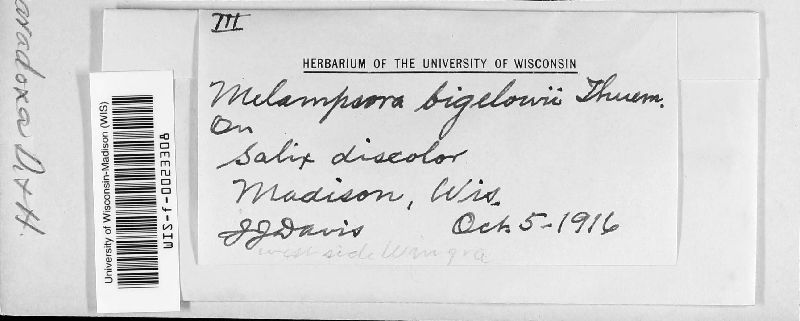 III
HERBARIUM OF THE UNIVERSITY OF WISCONSIN
Melampsora bigelowii Thuem.
On
Salix discolor
Madison, Wis.
JJ Davis Oct. 5-1916
west side Wingra
University of Wisconsin-Madison (WIS)
WIS-f-0023308
aradoxa D+H.